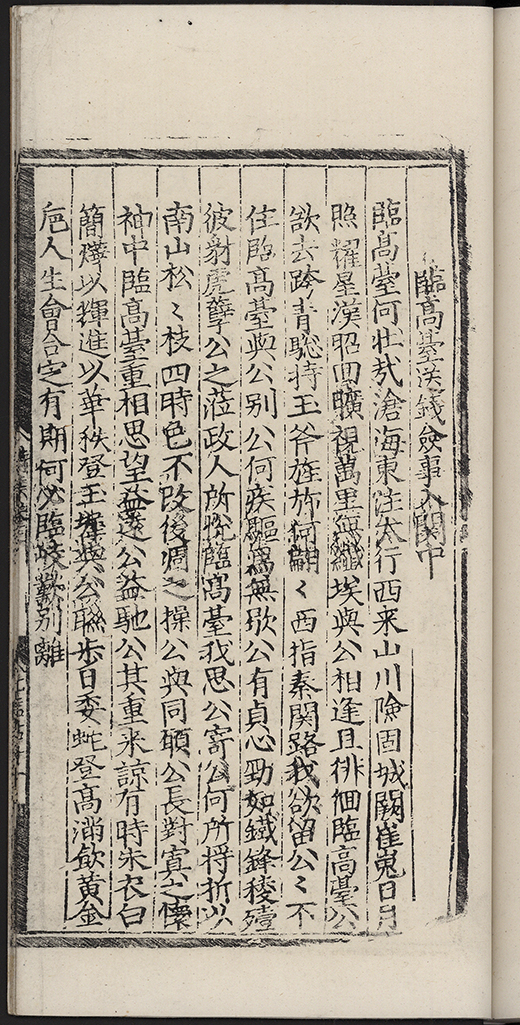 臨髙臺送錢僉事入関中
臨髙臺何壮㦲滄海東注太行西来山川險固城闕崔嵬日月
照耀星漢昭回曠視萬里無纎埃與公相逢且徘徊臨高臺公
欲去跨青驄持玉斧旌斾何翩〻西指秦関路我欲留公〻不
住臨高臺與公别公何疾驅為無歇公有貞心勁如鐡鋒稜殪
彼射虎孽公之蒞政人所恱臨髙臺我思公寄公何所将折以
南山松〻枝四時色不改後凋之操公與同頋公長對寘之懐
袖中臨髙臺重相思望益逺公益馳公其重来諒有時朱衣白
簡燁以輝進以華秩登玉墀與公聮歩日委蛇登高滿飲黄金
巵人生會合定有期何必臨岐歎别離